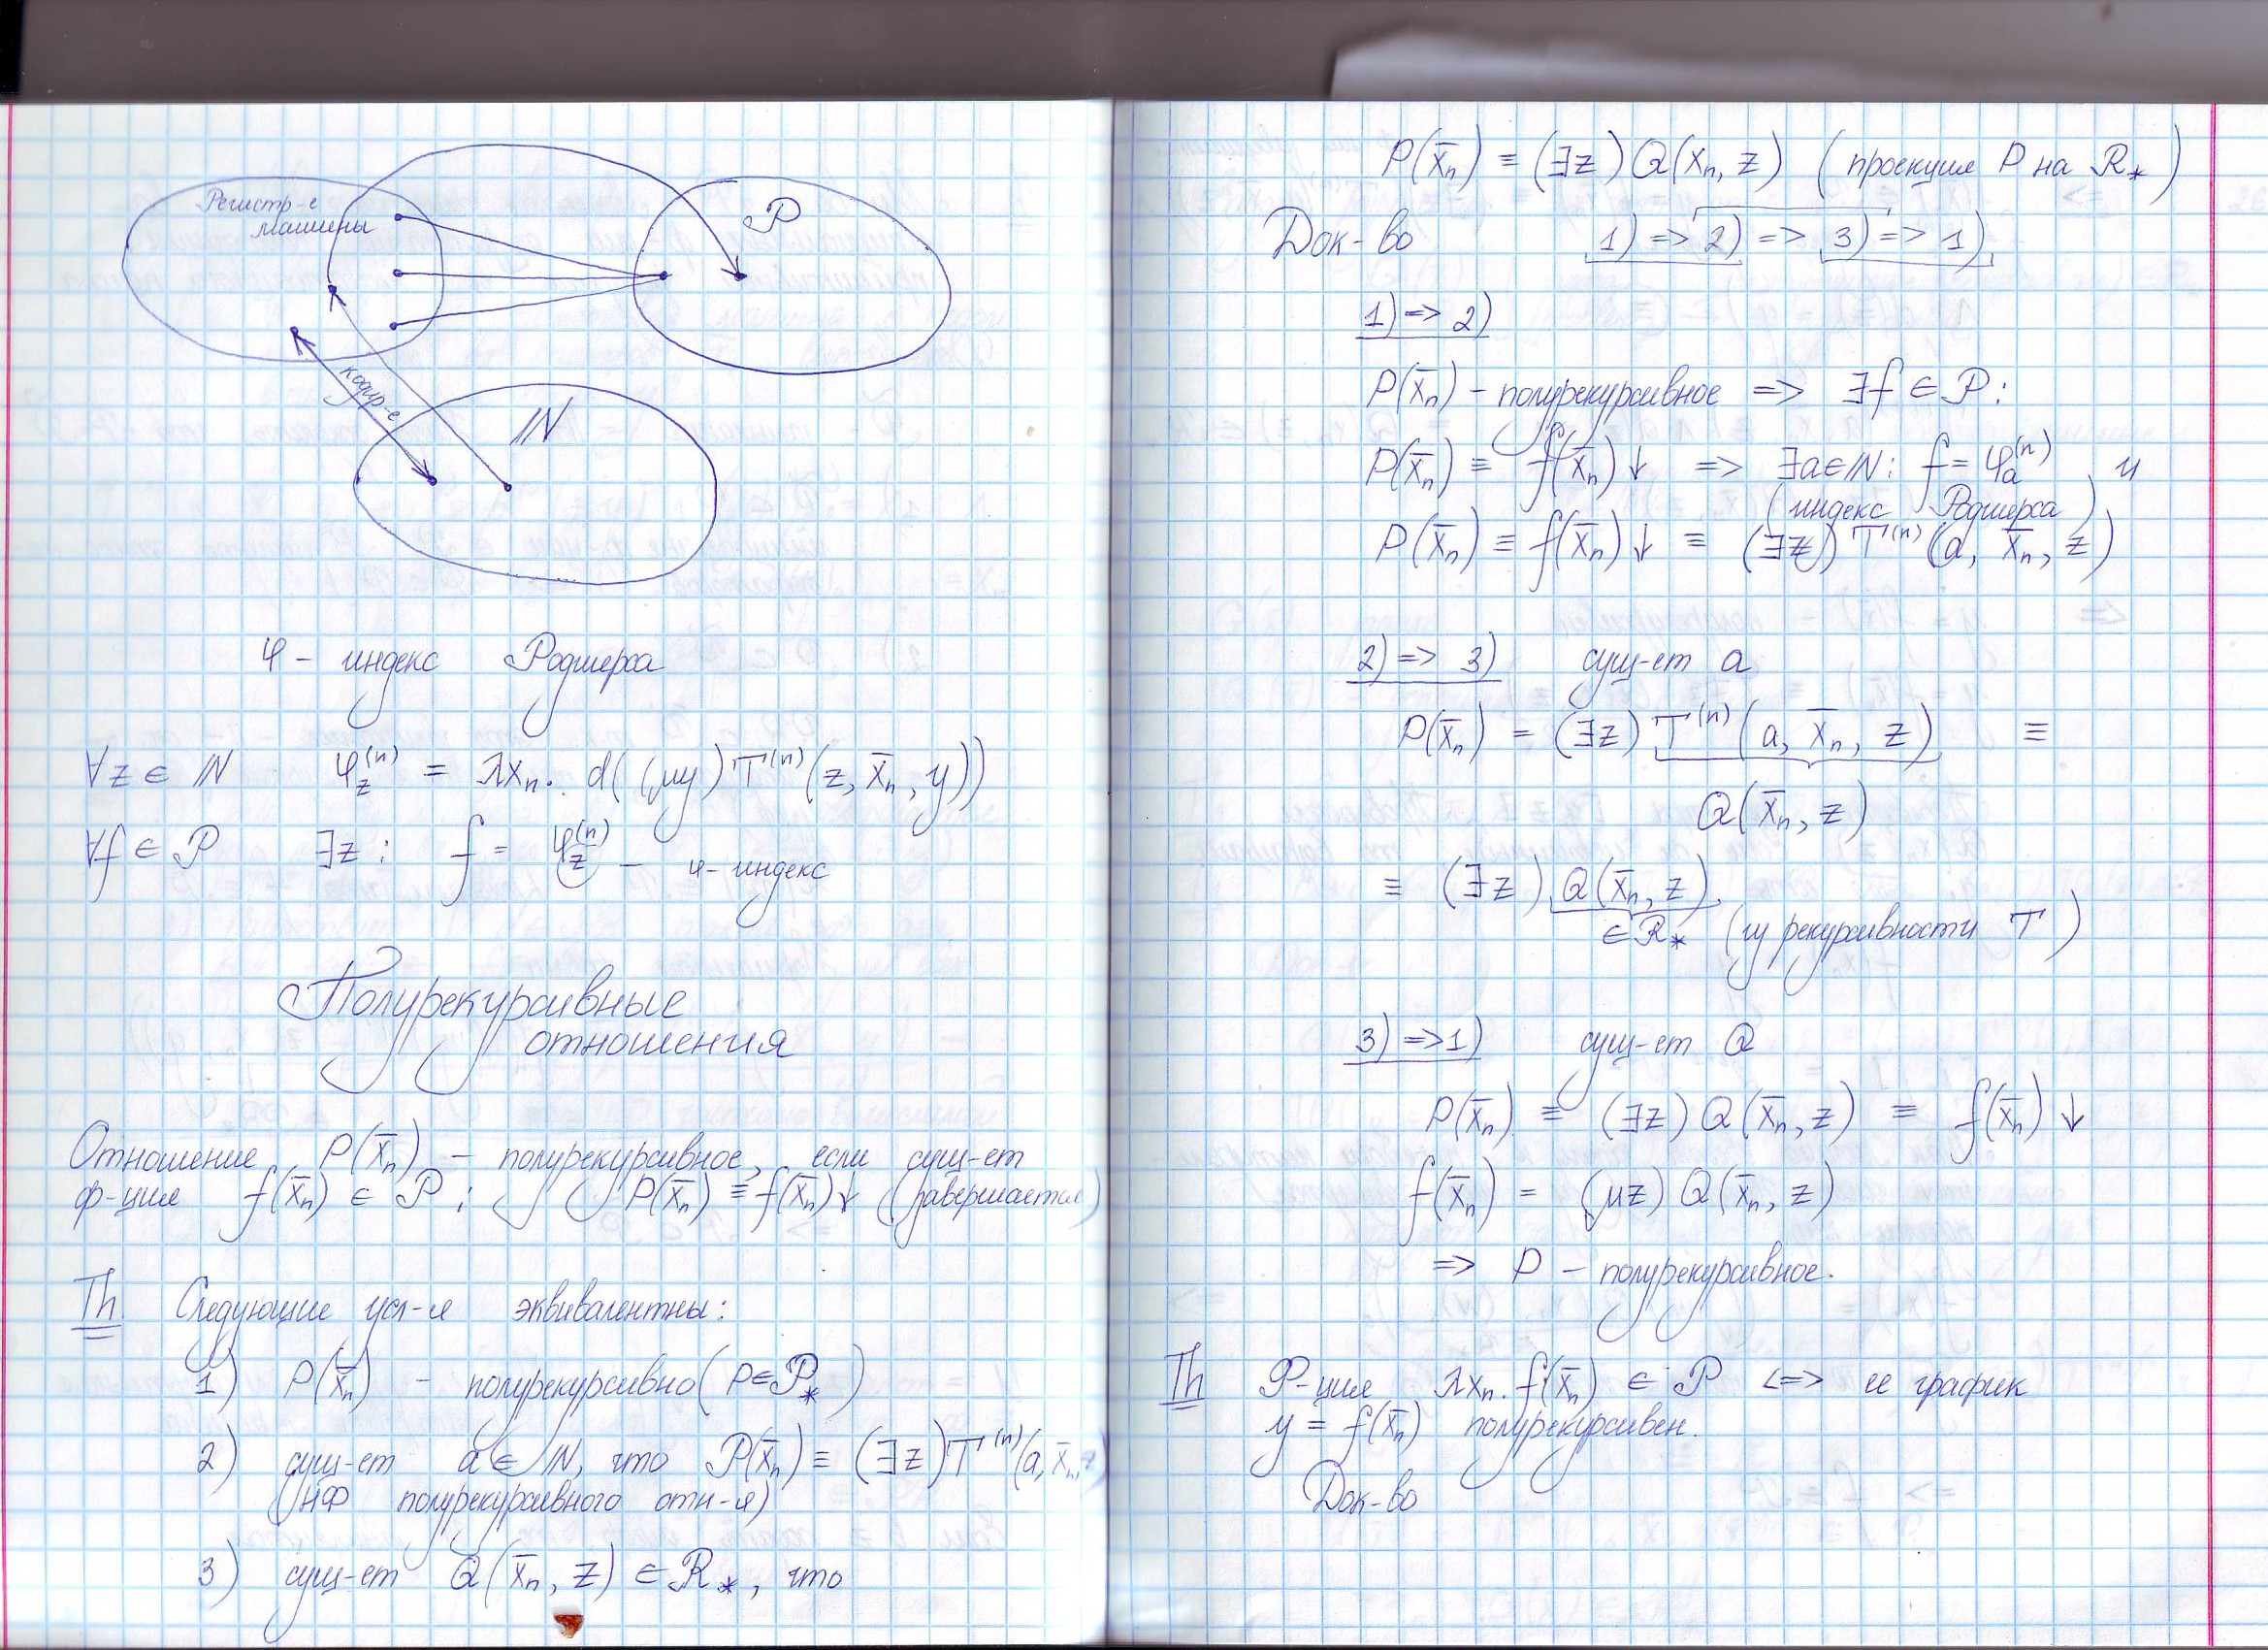 Регистр-е
машины
𝒫
кодир-е
ℕ
φ - индекс Роджерса
∀z ∈ ℕ φ_z^(n) = λx_n. d((μy)T^(n)(z, x̄_n, y))
∀f ∈ 𝒫 ∃z : f = φ_z^(n) - φ-индекс
Полурекурсивные
отношения
Отношение P(x̄_n) - полурекурсивное, если сущ-ет
ф-ция f(x̄_n) ∈ 𝒫 : P(x̄_n) ≡ f(x̄_n)↓ (завершается)
Th Следующие усл-я эквивалентны:
1) P(x̄_n) - полурекурсивно (P∈𝒫_*)
2) сущ-ет a ∈ ℕ, что P(x̄_n) ≡ (∃z)T^(n)(a, x̄_n, z)
(НФ полурекурсивного отн-я)
3) сущ-ет Q(x̄_n, z) ∈ R_*, что
P(x̄_n) ≡ (∃z)Q(x_n, z) (проекция P на R_*)
Док-во 1) => 2) => 3) => 1)
1) => 2)
P(x̄_n) - полурекурсивное => ∃f ∈ 𝒫:
P(x̄_n) ≡ f(x̄_n)↓ => ∃a∈ℕ: f = φ_a^(n) и
(индекс Роджерса)
P(x̄_n) ≡ f(x̄_n)↓ ≡ (∃z)T^(n)(a, x̄_n, z)
2) => 3) сущ-ет a
P(x̄_n) = (∃z)T^(n)(a, x̄_n, z) ≡
Q(x̄_n, z)
≡ (∃z)Q(x̄_n, z)
∈R_* (из рекурсивности T)
3) => 1) сущ-ет Q
P(x̄_n) ≡ (∃z)Q(x̄_n, z) ≡ f(x̄_n)↓
f(x̄_n) = (μz)Q(x̄_n, z)
=> P - полурекурсивное.
Th Ф-ция λx_n. f(x̄_n) ∈ 𝒫 <=> ее график
y = f(x̄_n) полурекурсивен.
Док-во